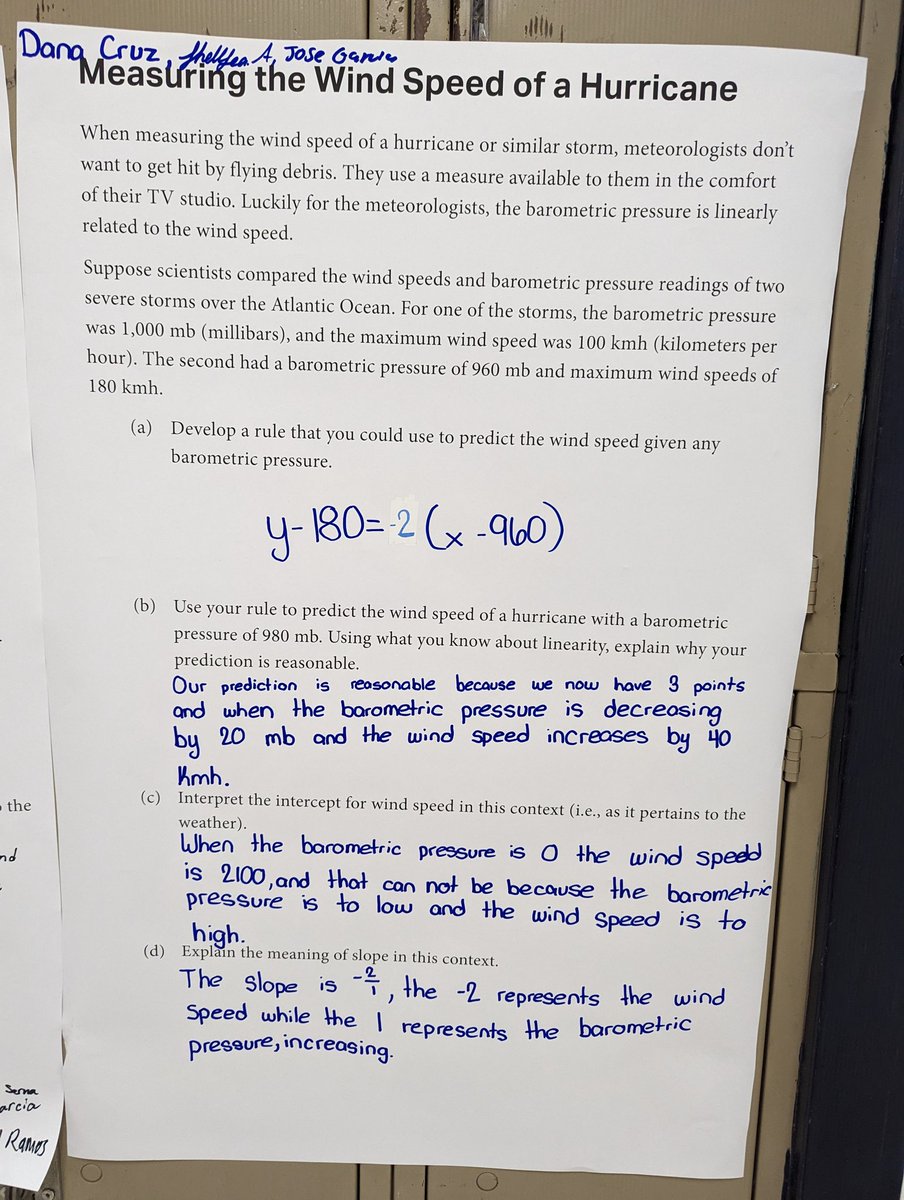 Dana Cruz, A, Jose Garcia
Measuring the Wind Speed of a Hurricane
When measuring the wind speed of a hurricane or similar storm, meteorologists don't
want to get hit by flying debris. They use a measure available to them in the comfort
of their TV studio. Luckily for the meteorologists, the barometric pressure is linearly
related to the wind speed.
Suppose scientists compared the wind speeds and barometric pressure readings of two
severe storms over the Atlantic Ocean. For one of the storms, the barometric pressure
was 1,000 mb (millibars), and the maximum wind speed was 100 kmh (kilometers per
hour). The second had a barometric pressure of 960 mb and maximum wind speeds of
180 kmh.
(a) Develop a rule that you could use to predict the wind speed given any
barometric pressure.
y-180=-2(x-960)
(b) Use your rule to predict the wind speed of a hurricane with a barometric
pressure of 980 mb. Using what you know about linearity, explain why your
prediction is reasonable.
Our prediction is reasonable because we now have 3 points
and when the barometric pressure is decreasing
by 20 mb and the wind speed increases by 40
Kmh.
(c) Interpret the intercept for wind speed in this context (i.e., as it pertains to the
weather).
When the barometric pressure is 0 the wind spedd
is 2100, and that can not be because the barometric
pressure is to low and the wind speed is to
high.
(d) Explain the meaning of slope in this context.
The slope is -2/1, the -2 represents the wind
Speed while the 1 represents the barometric
pressure, increasing.
the
nd
Serna
arcia
Ramos